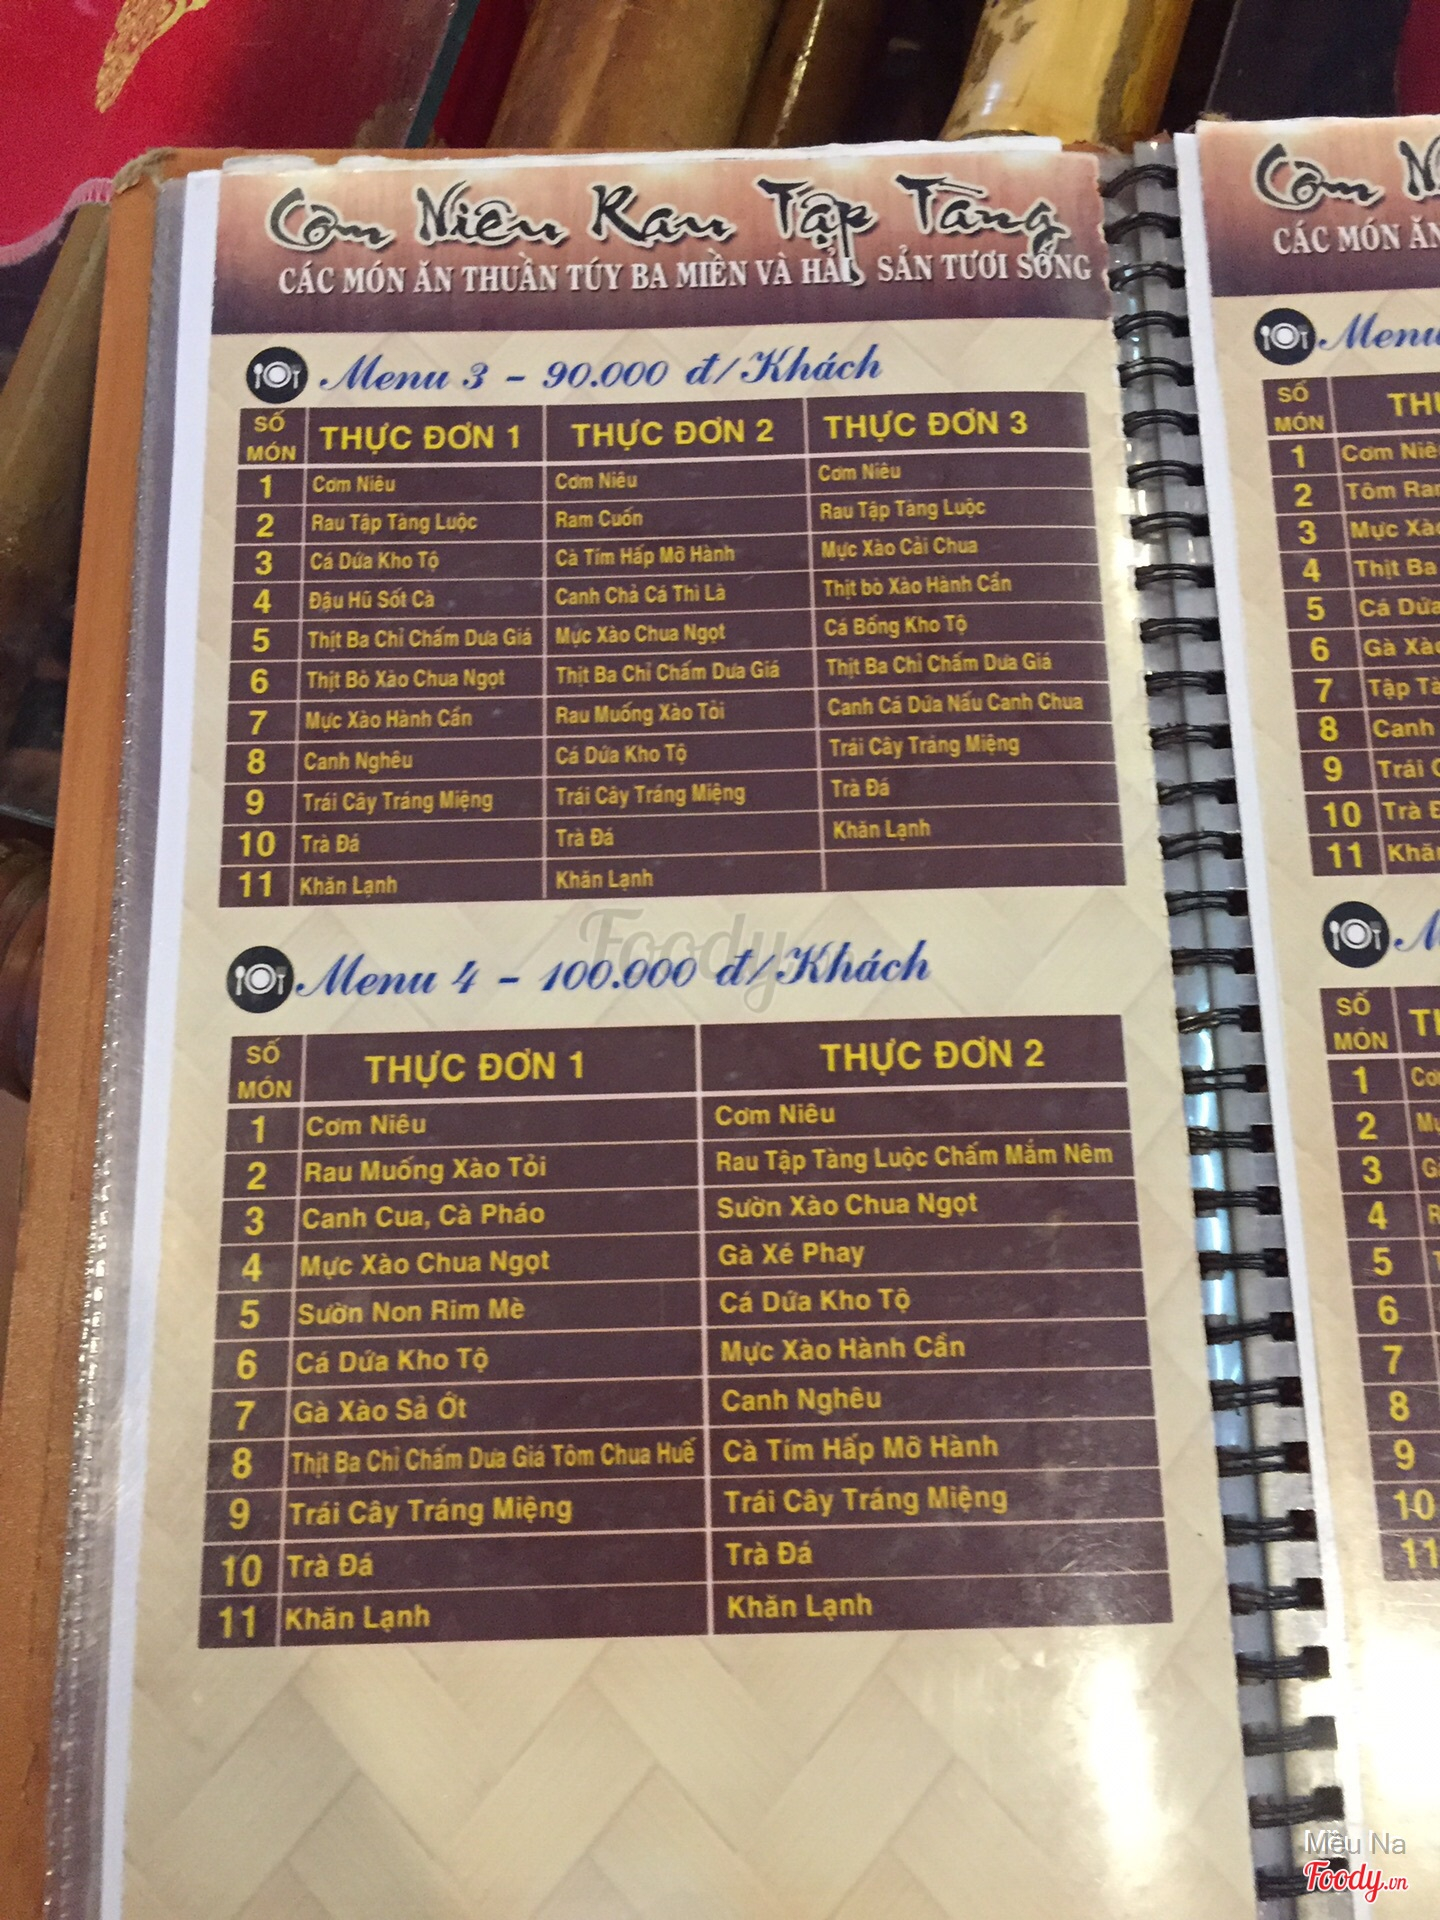 Cơm Niêu Rau Tập Tàng
CÁC MÓN ĂN THUẦN TÚY BA MIỀN VÀ HẢI SẢN TƯƠI SỐNG
Menu 3 - 90.000 đ/Khách
SỐ MÓN THỰC ĐƠN 1 THỰC ĐƠN 2 THỰC ĐƠN 3
1 Cơm Niêu Cơm Niêu Cơm Niêu
2 Rau Tập Tàng Luộc Ram Cuốn Rau Tập Tàng Luộc
3 Cá Dứa Kho Tộ Cà Tím Hấp Mỡ Hành Mực Xào Cải Chua
4 Đậu Hũ Sốt Cà Canh Chả Cá Thì Là Thịt bò Xào Hành Cần
5 Thịt Ba Chỉ Chấm Dưa Giá Mực Xào Chua Ngọt Cá Bống Kho Tộ
6 Thịt Bò Xào Chua Ngọt Thịt Ba Chỉ Chấm Dưa Giá Thịt Ba Chỉ Chấm Dưa Giá
7 Mực Xào Hành Cần Rau Muống Xào Tỏi Canh Cá Dứa Nấu Canh Chua
8 Canh Nghêu Cá Dứa Kho Tộ Trái Cây Tráng Miệng
9 Trái Cây Tráng Miệng Trái Cây Tráng Miệng Trà Đá
10 Trà Đá Trà Đá Khăn Lạnh
11 Khăn Lạnh Khăn Lạnh
Foody
Menu 4 - 100.000 đ/Khách
SỐ MÓN THỰC ĐƠN 1 THỰC ĐƠN 2
1 Cơm Niêu Cơm Niêu
2 Rau Muống Xào Tỏi Rau Tập Tàng Luộc Chấm Mắm Nêm
3 Canh Cua, Cà Pháo Sườn Xào Chua Ngọt
4 Mực Xào Chua Ngọt Gà Xé Phay
5 Sườn Non Rim Mè Cá Dứa Kho Tộ
6 Cá Dứa Kho Tộ Mực Xào Hành Cần
7 Gà Xào Sả Ớt Canh Nghêu
8 Thịt Ba Chỉ Chấm Dưa Giá Tôm Chua Huế Cà Tím Hấp Mỡ Hành
9 Trái Cây Tráng Miệng Trái Cây Tráng Miệng
10 Trà Đá Trà Đá
11 Khăn Lạnh Khăn Lạnh
Cơm
CÁC MÓN ĂN
Menu
SỐ MÓN
1 Cơm
2 Tôm
3 Mực
4 Thịt Ba
5 Cá Dứa
6 Gà
7 Tập
8 Canh
9 Trái
10 Trà
11
SỐ MÓN
1
2
3
4
5
6
7
8
9
10
11
Miêu Na
Foody.vn